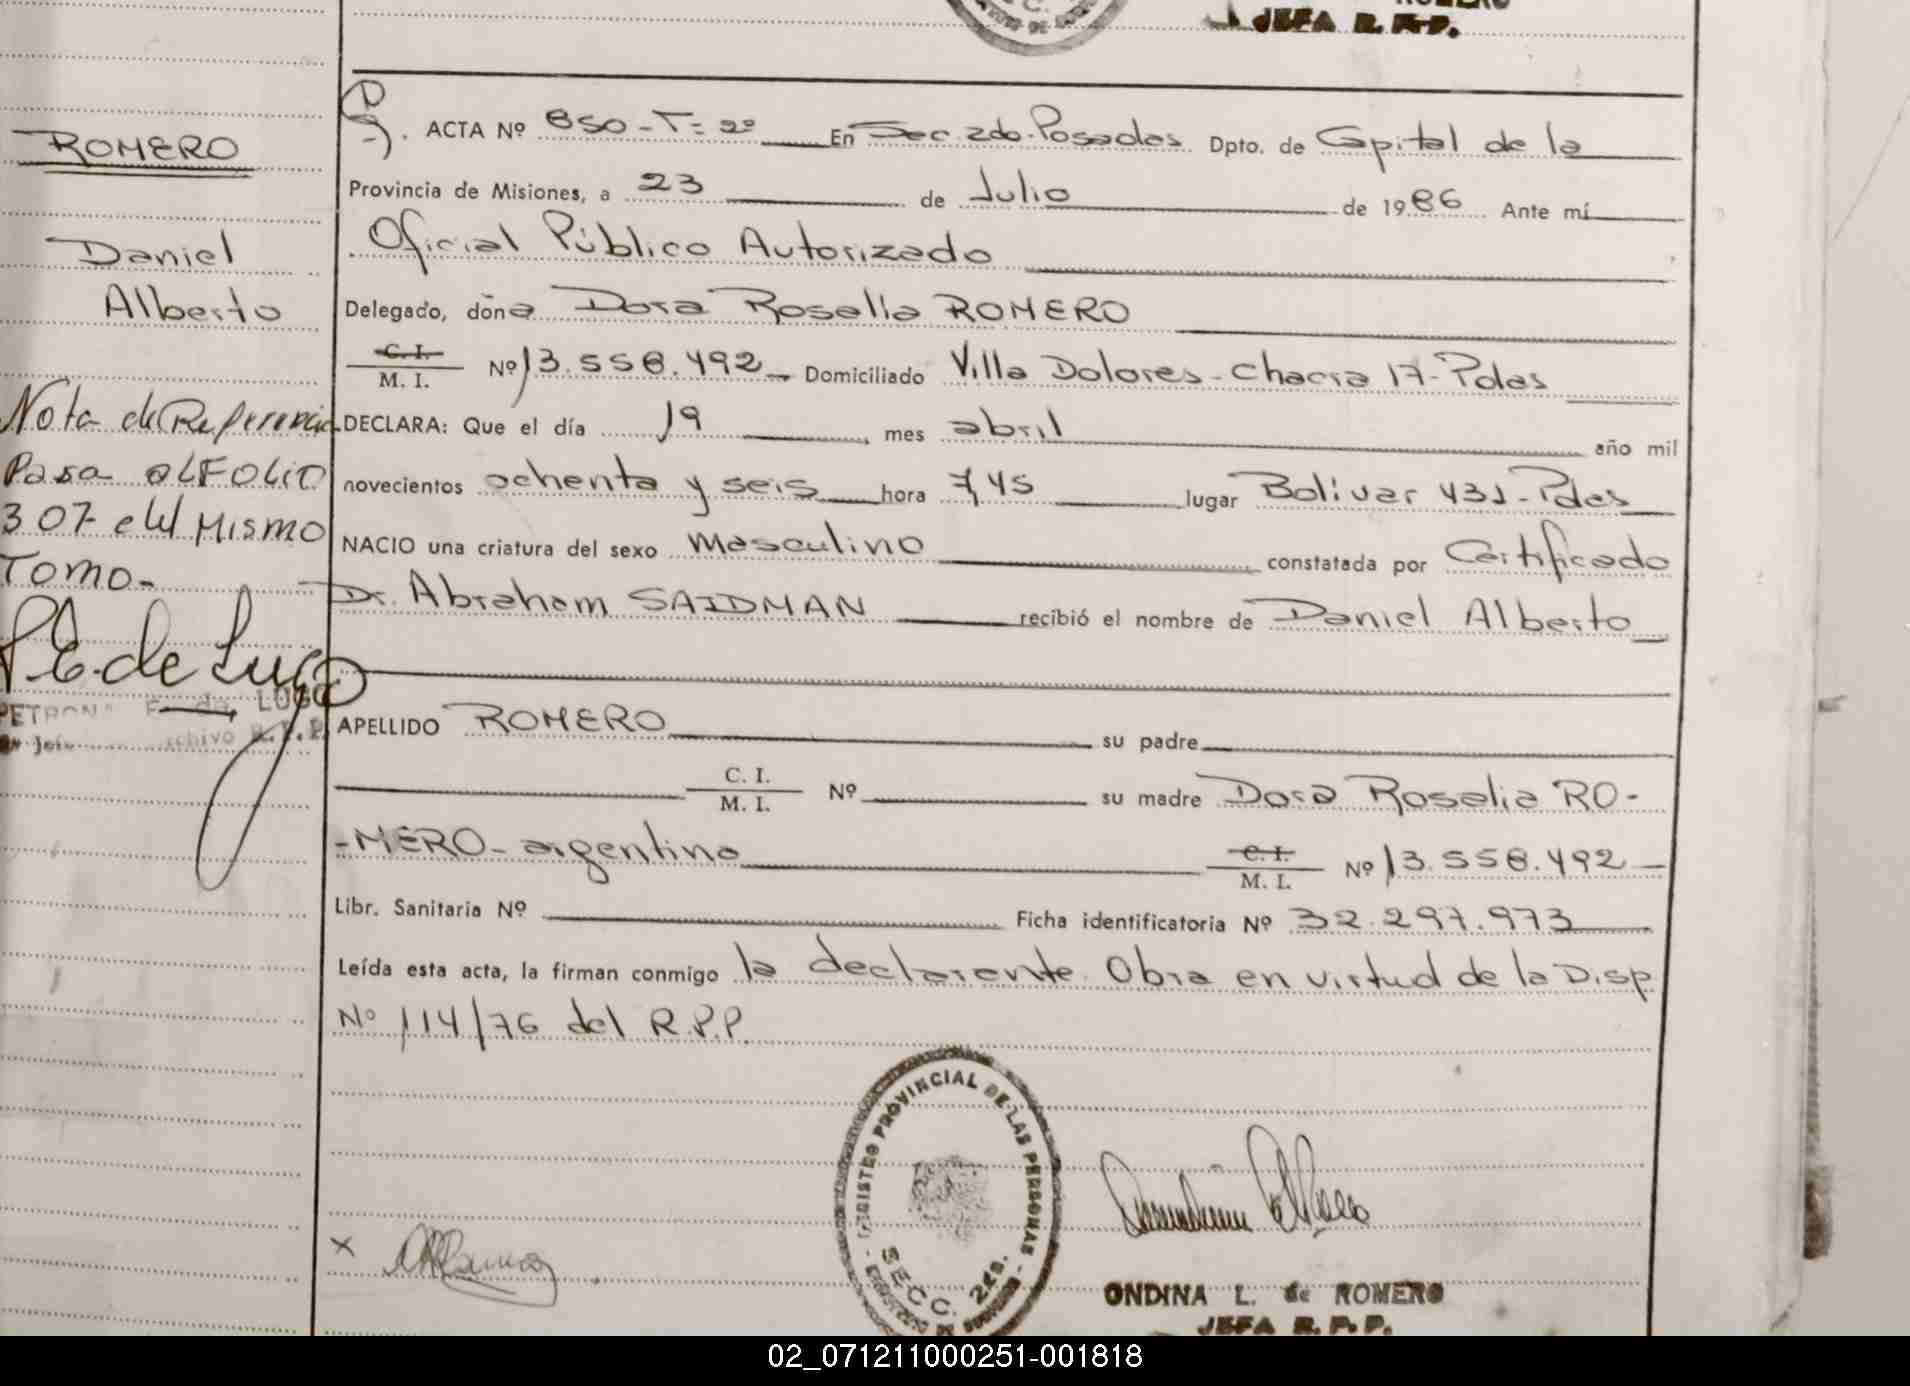 JEFA R. P. P.
ROMERO
Daniel
Alberto
Nota de Referencia
Pasa al FOLIO
307 del Mismo
Tomo.-
P. E. de Lugo
PETRONA E. de LUGO
Archivo R.P.P.
ACTA Nº 850-T=2º En Sec. 2do. Posadas Dpto. de Capital de la
Provincia de Misiones, a 23 de Julio de 1986 Ante mí
Oficial Público Autorizado
Delegado, doña Dora Rosalía ROMERO
C. I.
M. I. Nº 13.558.492 Domiciliado Villa Dolores-Chacra 17-Pdas
DECLARA: Que el día 19 mes abril año mil
novecientos ochenta y seis hora 7,45 lugar Bolívar 431-Pdas
NACIO una criatura del sexo masculino constatada por Certificado
Dr. Abraham SAIDMAN recibió el nombre de Daniel Alberto
APELLIDO ROMERO su padre
C. I.
M. I. Nº su madre Dora Rosalia RO-
-MERO- argentina C. I.
M. I. Nº 13.558.492
Libr. Sanitaria Nº Ficha identificatoria Nº 32.297.973
Leída esta acta, la firman conmigo la declarante. Obra en virtud de la Disp.
Nº 114/76 del R.P.P.
REGISTRO PROVINCIAL DE LAS PERSONAS
SECC. 2da.
X
ONDINA L. de ROMERO
JEFA R. P. P.
02_071211000251-001818